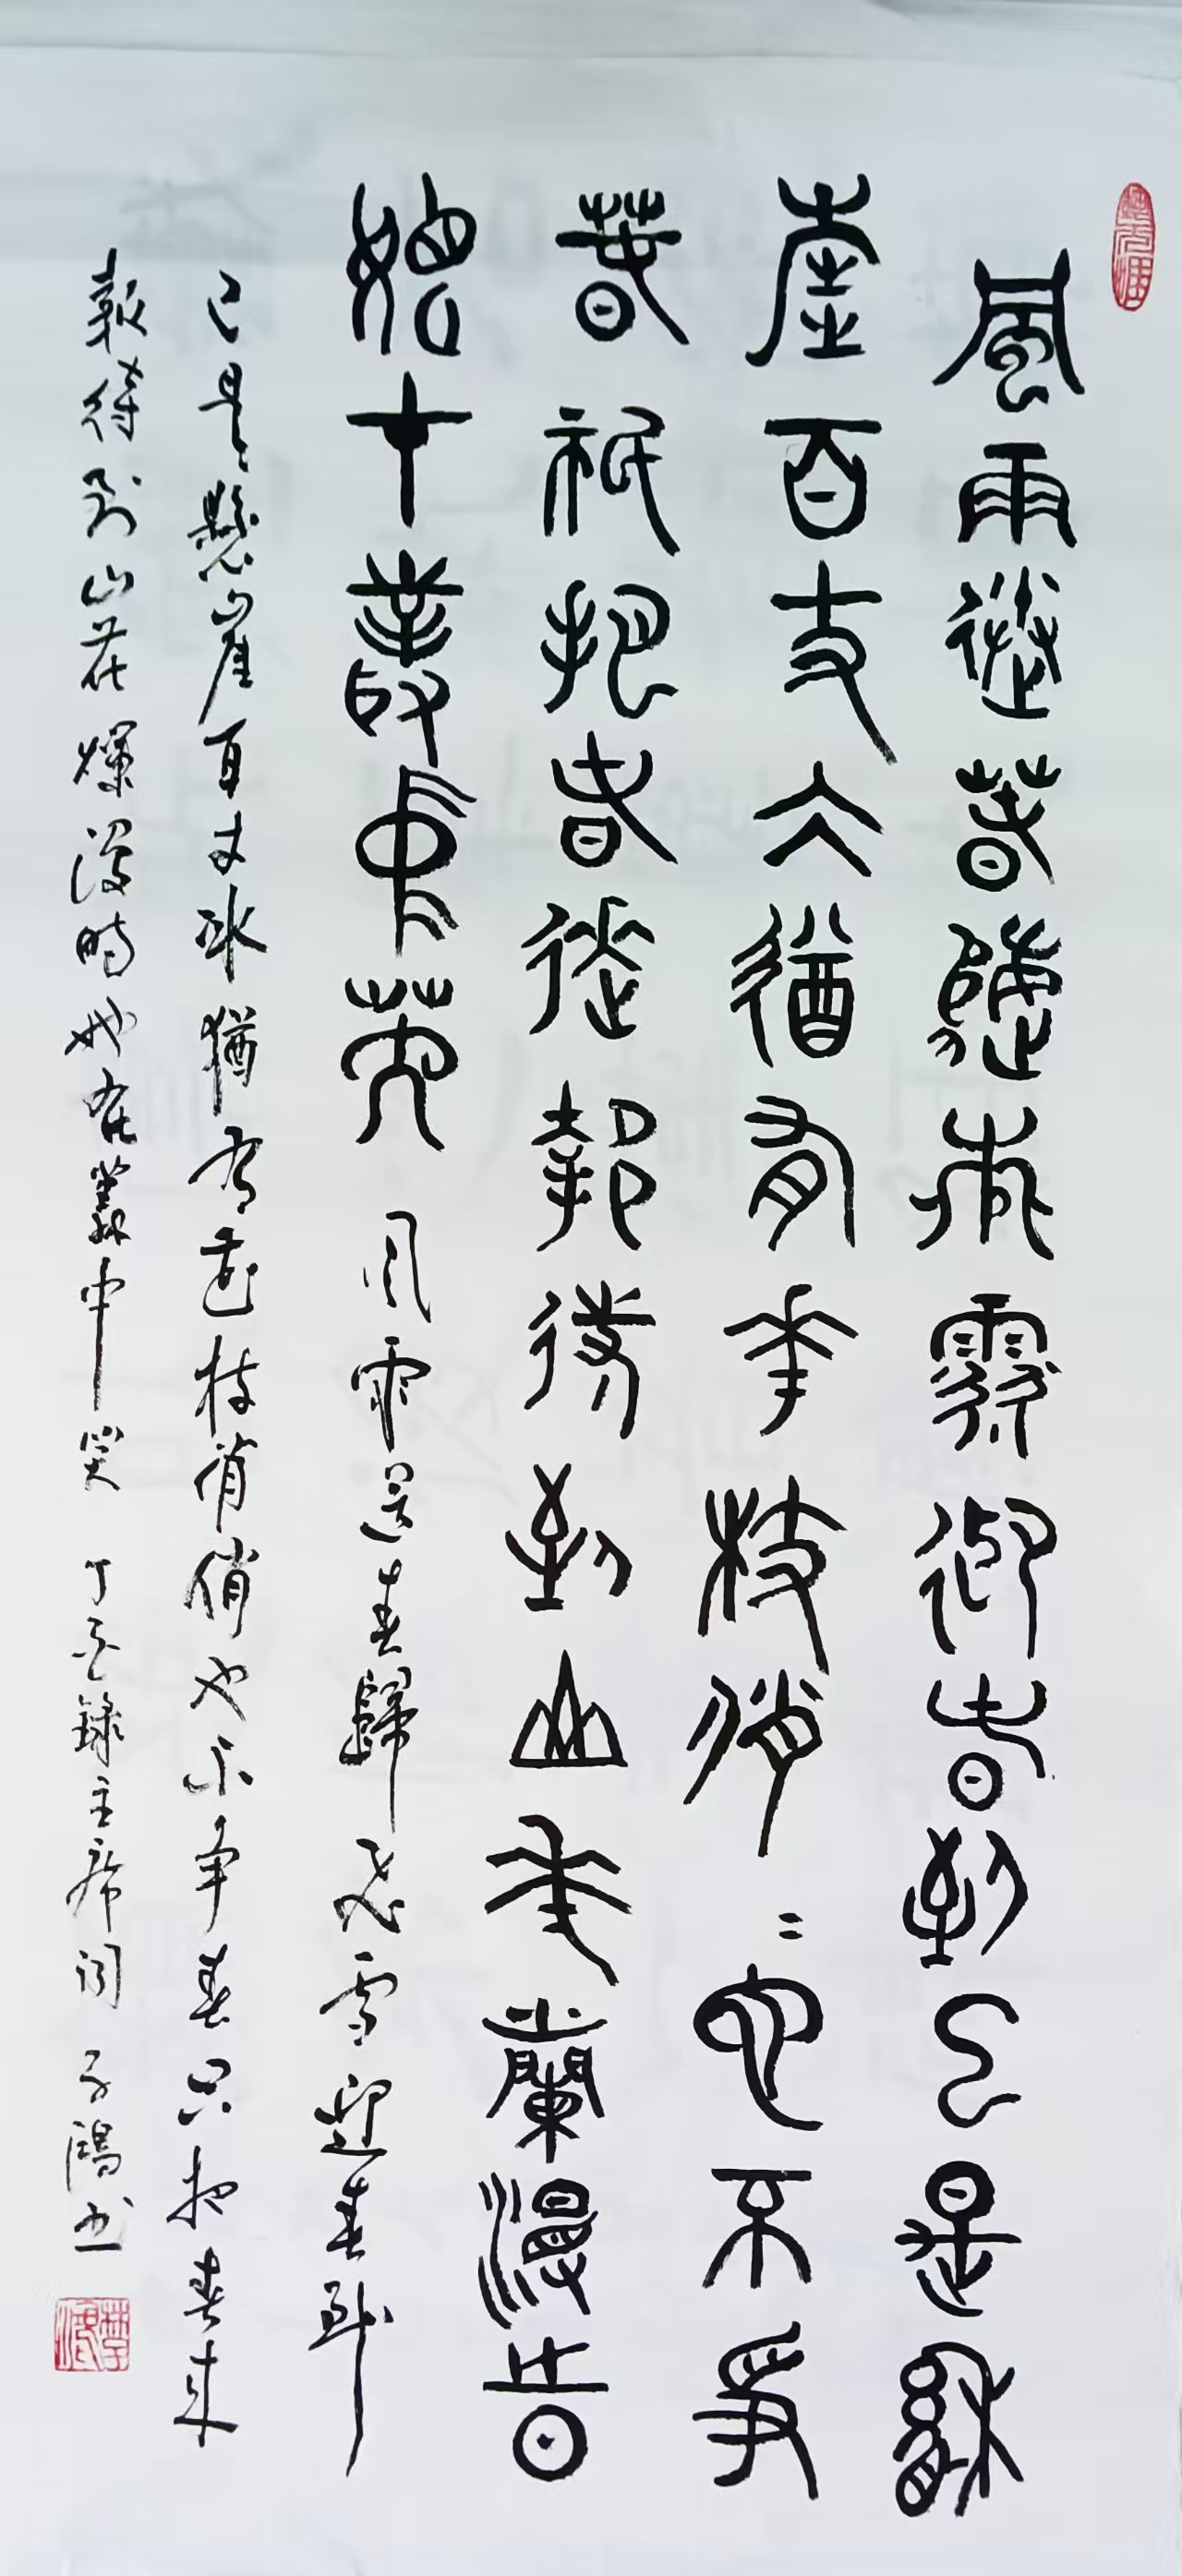 風雨送春歸飛雪迎春到已是懸
崖百丈冰猶有花枝俏〻也不爭
春祇把春來報待到山花爛漫時
她在叢中笑 风雨送春歸飛雪迎春到
已是懸崖百丈冰猶有花枝俏俏也不争春只把春来
報待到山花爛漫時她在叢中笑 丁亥録主席词 子鴻书